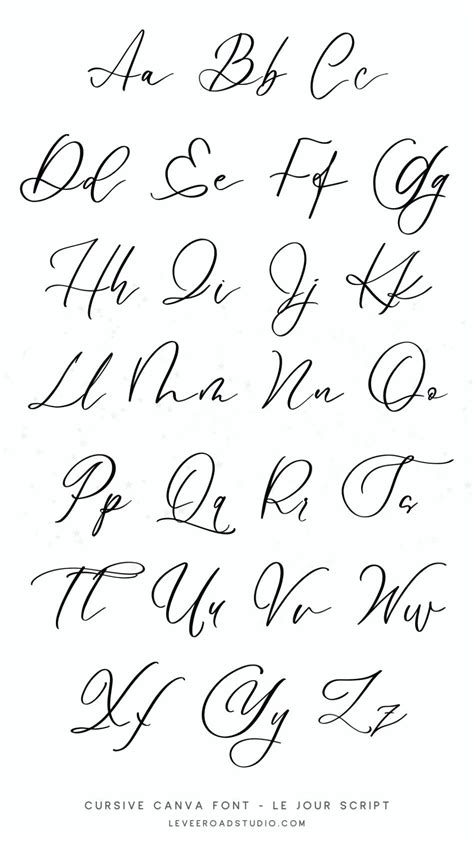 Aa Bb Cc
Dd Ee Ff Gg
Hh Ii Jj Kk
Ll Mm Nn Oo
Pp Qq Rr Ss
Tt Uu Vv Ww
Xx Yy Zz
CURSIVE CANVA FONT - LE JOUR SCRIPT
LEVEEROADSTUDIO.COM